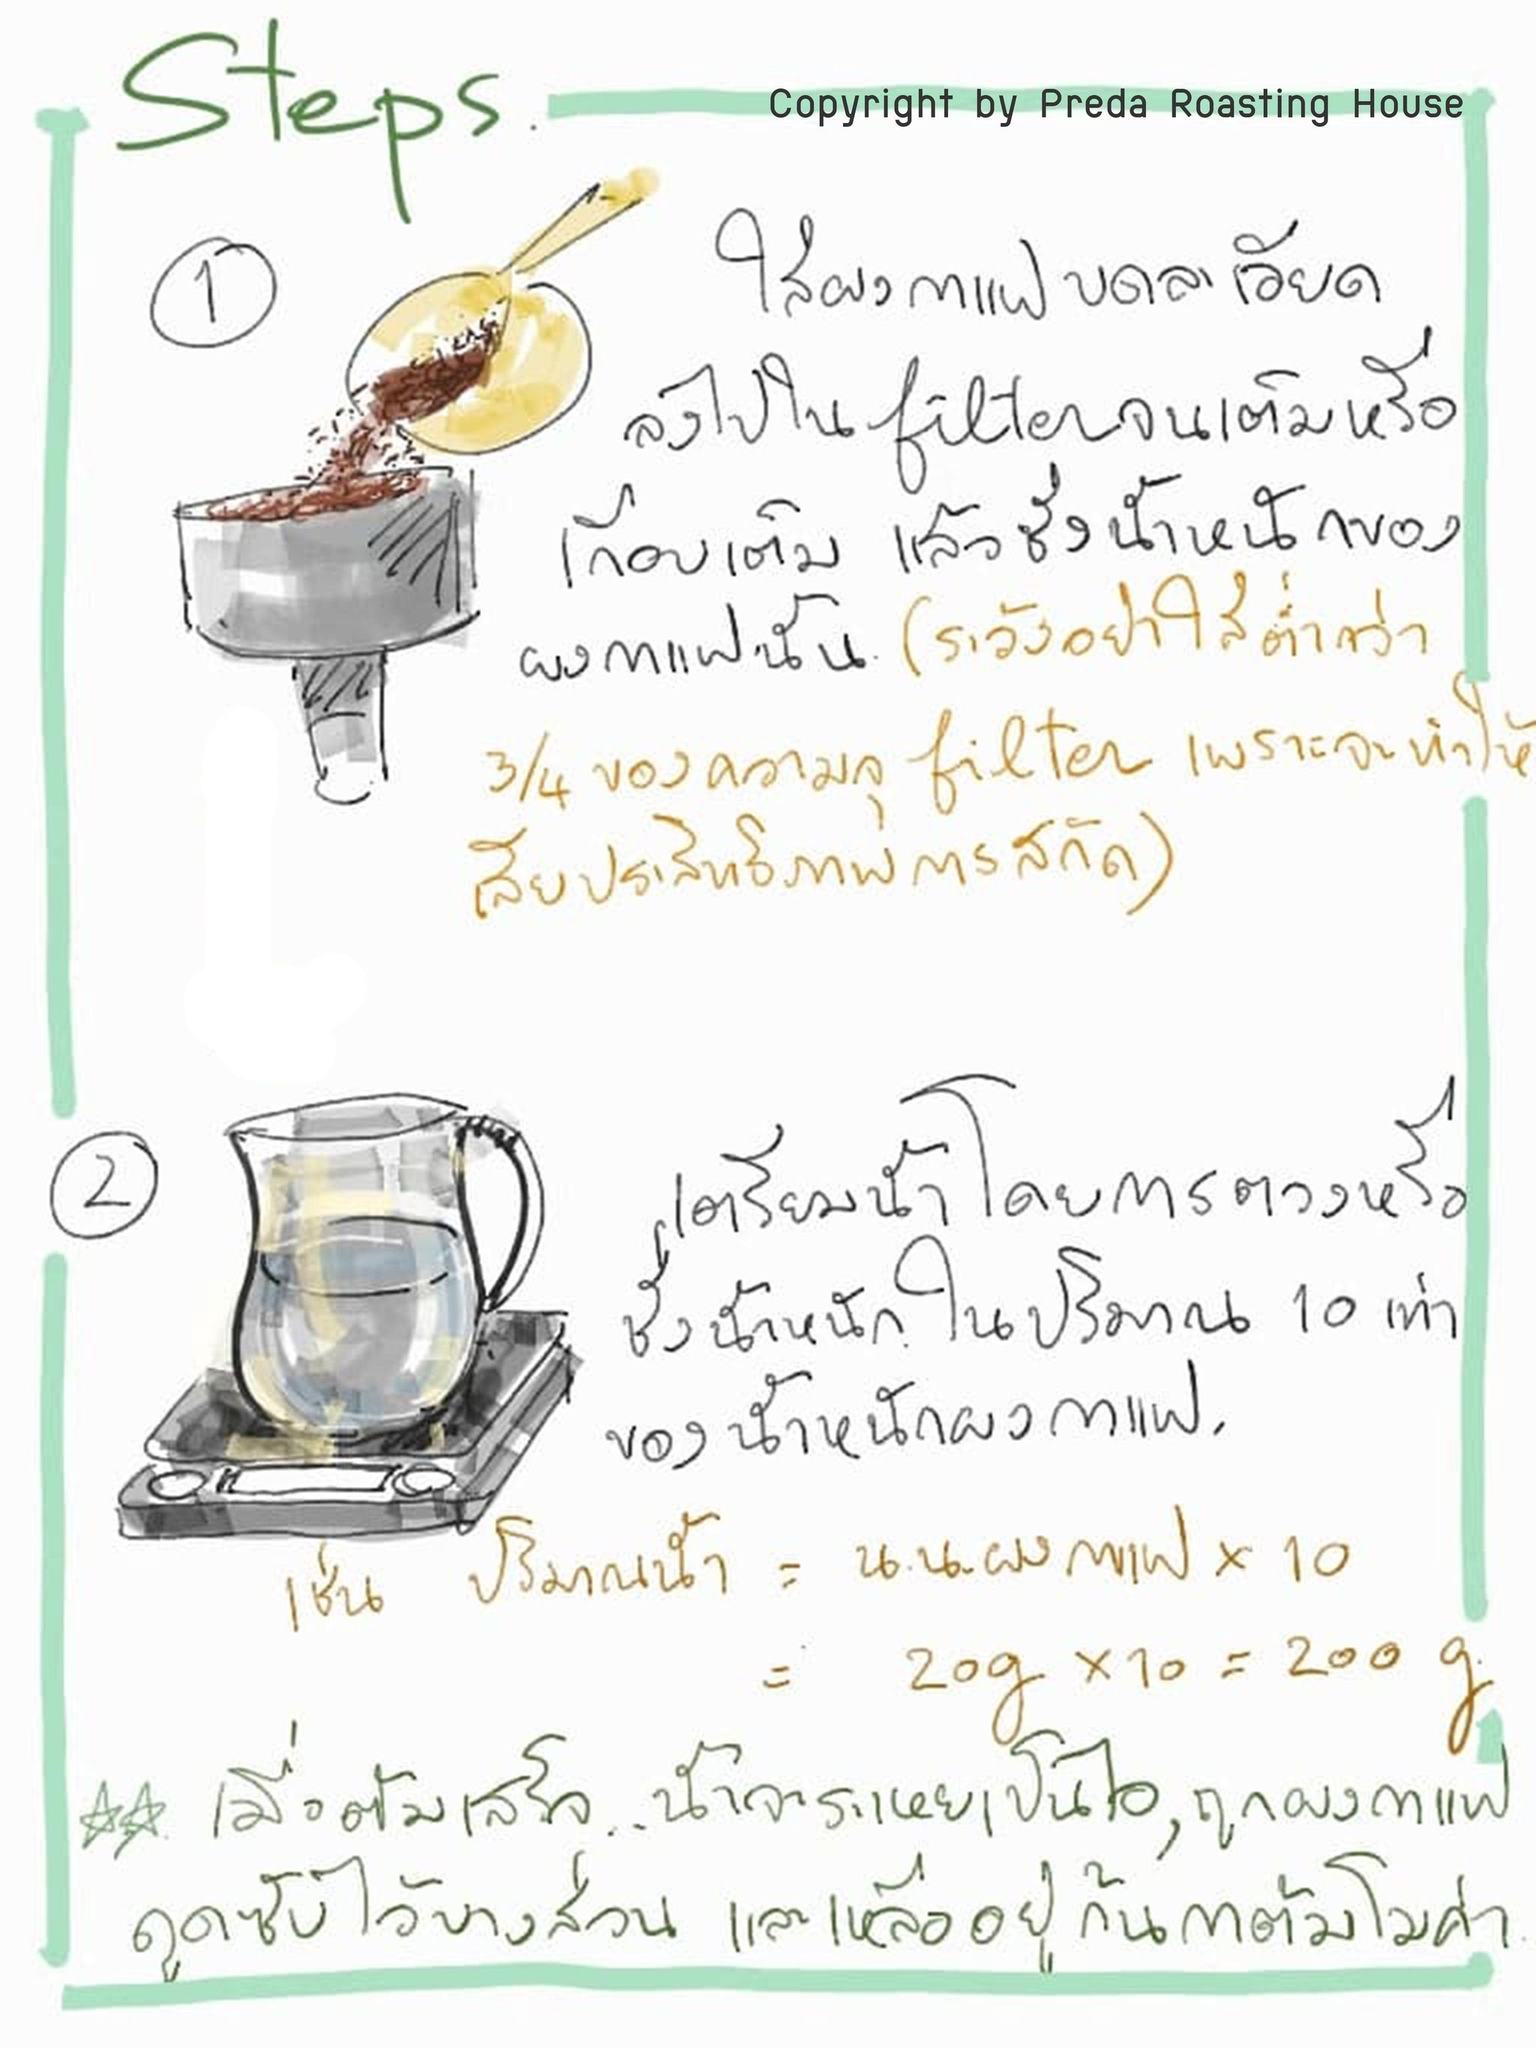 Steps.
Copyright by Preda Roasting House
1
ใส่ผงกาแฟบดละเอียด
ลงไปใน filter จนเต็มหรือ
เกือบเต็ม แล้วชั่งน้ำหนักของ
ผงกาแฟนั้น (ระวังอย่าใส่ต่ำกว่า
3/4 ของความจุ filter เพราะจะทำให้
เสียประสิทธิภาพการสกัด)
2
เตรียมน้ำโดยการตวงหรือ
ชั่งน้ำหนัก ในปริมาณ 10 เท่า
ของน้ำหนักผงกาแฟ.
เช่น ปริมาณน้ำ = น.น.ผงกาแฟ × 10
= 20g × 10 = 200 g.
☆☆ เมื่อต้มเสร็จ.. น้ำจะระเหยเป็นไอ, ถูกผงกาแฟ
ดูดซับไว้บางส่วน และเหลืออยู่ก้นกาต้มโมค่า.